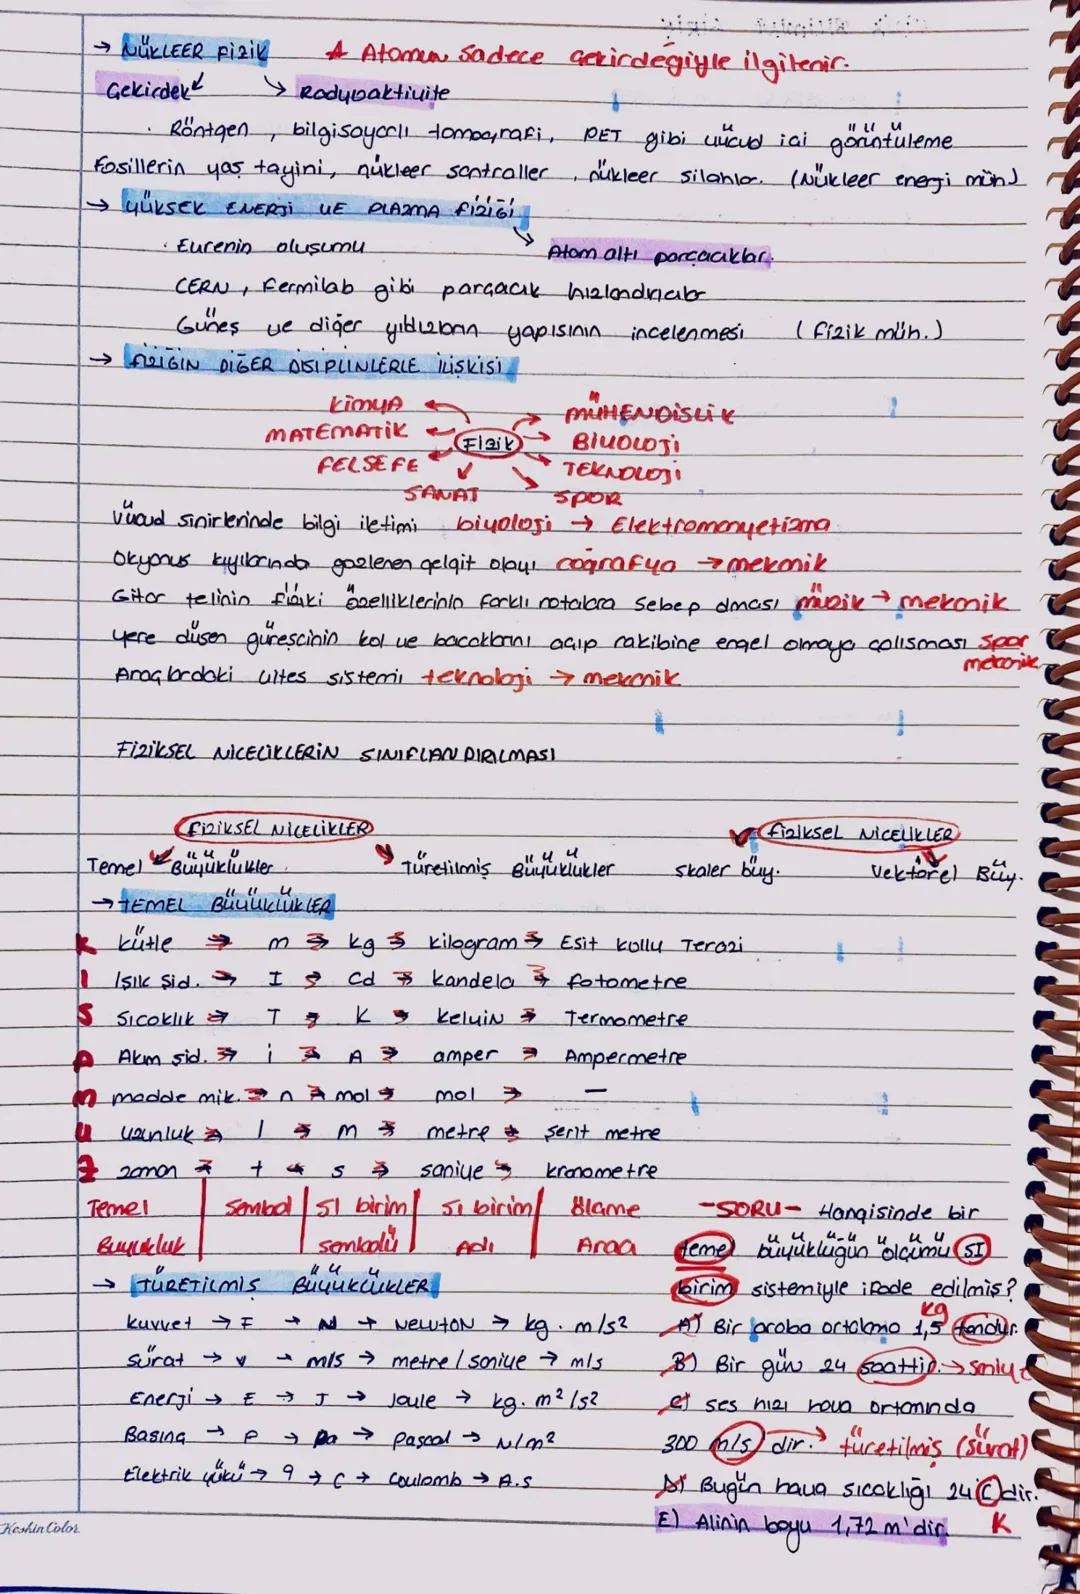 → NÜKLEER FİZİK * Atomun sadece çekirdeğiyle ilgilenir.
Çekirdek Radyoaktivite
· Röntgen, bilgisayarlı tomografi, PET gibi vücud içi görüntüleme
Fosillerin yaş tayini, nükleer santraller, nükleer silahlar. (Nükleer enerji müh)
→ YÜKSEK ENERJİ VE PLAZMA FİZİĞİ
· Evrenin oluşumu Atom altı parçacıklar.
CERN, Fermilab gibi parçacık hızlandırıcılar
Güneş ve diğer yıldızların yapısının incelenmesi (Fizik müh.)
→ FİZİĞİN DİĞER DİSİPLİNLERLE İLİŞKİSİ
KİMYA MÜHENDİSLİK
MATEMATİK Fizik BİYOLOJİ
FELSEFE TEKNOLOJİ
SANAT SPOR
Vücud sinirlerinde bilgi iletimi biyoloji → Elektromanyetizma
Okyanus kıyılarında gözlenen gelgit olayı coğrafya → mekanik
Gitar telinin fiziki özelliklerinin farklı notalara sebep olması müzik → mekanik
Yere düşen güreşcinin kol ve bacaklarını açıp rakibine engel olmaya çalışması Spor
mekanik
Araçlardaki vites sistemi teknoloji → mekanik
FİZİKSEL NİCELİKLERİN SINIFLANDIRILMASI
FİZİKSEL NİCELİKLER fiziksel NİCELİKLER
Temel Büyüklükler Türetilmiş Büyüklükler skaler büy. Vektörel Büy.
→ TEMEL BÜYÜKLÜKLER
K kütle → m → kg → kilogram → Eşit kollu Terazi
I Işık Şid. → I → Cd → kandela → fotometre
S Sıcaklık → T → K → kelvin → Termometre
A Akım şid. → i → A → amper → Ampermetre
m madde mik. → n → mol → mol → —
U uzunluk → l → m → metre → şerit metre
Z zaman → t → s → saniye → kronometre
Temel Sembol SI birim SI birim Ölçme
Büyüklük sembolü Adı Aracı
-SORU- Hangisinde bir
temel büyüklüğün ölçümü SI
birim sistemiyle ifade edilmiş?
kg
A) Bir araba ortalama 1,5 tondur.
B) Bir gün 24 saattir. → saniye
C) ses hızı hava ortamında
300 m/s dir. → türetilmiş (sürat)
D) Bugün hava sıcaklığı 24 C dir.
E) Alinin boyu 1,72 m'dir. K
→ TÜRETİLMİŞ BÜYÜKLÜKLER
kuvvet → F → N → NEWTON → kg . m/s²
Sürat → v → m/s → metre / saniye → m/s
Enerji → E → J → Joule → kg . m²/s²
Basınç → P → Pa → pascal → N/m²
Elektrik yükü → q → C → Coulomb → A.s
Keskin Color